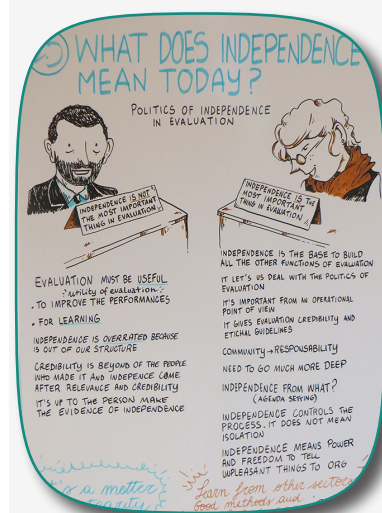 WHAT DOES INDEPENDENCE
MEAN TODAY?
POLITICS OF INDEPENDENCE
IN EVALUATION
INDEPENDENCE IS NOT
THE MOST IMPORTANT
THING IN EVALUATION
EVALUATION MUST BE USEFUL
utility of evaluation
• TO IMPROVE THE PERFORMANCES
• FOR LEARNING
INDEPENDENCE IS OVERRATED BECAUSE
IS OUT OF OUR STRUCTURE
CREDIBILITY IS BEYOND OF THE PEOPLE
WHO MADE IT AND INDEPENCE COME
AFTER RELEVANCE AND CREDIBILITY
IT'S UP TO THE PERSON MAKE
THE EVIDENCE OF INDEPENDENCE
's a matter
INDEPENDENCE IS THE
MOST IMPORTANT
THING IN EVALUATION
INDEPENDENCE IS THE BASE TO BUILD
ALL THE OTHER FUNCTIONS OF EVALUATION
IT LET'S US DEAL WITH THE POLITICS OF
EVALUATION
IT'S IMPORTANT FROM AN OPERATIONAL
POINT OF VIEW
IT GIVES EVALUATION CREDIBILITY AND
ETICHAL GUIDELINES
COMMUNITY → RESPONSABILITY
NEED TO GO MUCH MORE DEEP
INDEPENDENCE FROM WHAT?
(AGENDA SETTING)
INDEPENDENCE CONTROLS THE
PROCESS. IT DOES NOT MEAN
ISOLATION
INDEPENDENCE MEANS POWER
AND FREEDOM TO TELL
UNPLEASANT THINGS TO ORG
Learn from other sectors
good methods and